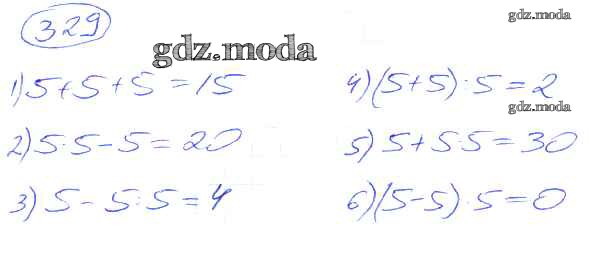 329
gdz.moda
gdz.moda
1) 5+5+5=15
2) 5·5-5=20
3) 5-5:5=4
4) (5+5):5=2
gdz.moda
5) 5+5·5=30
6) (5-5)·5=0